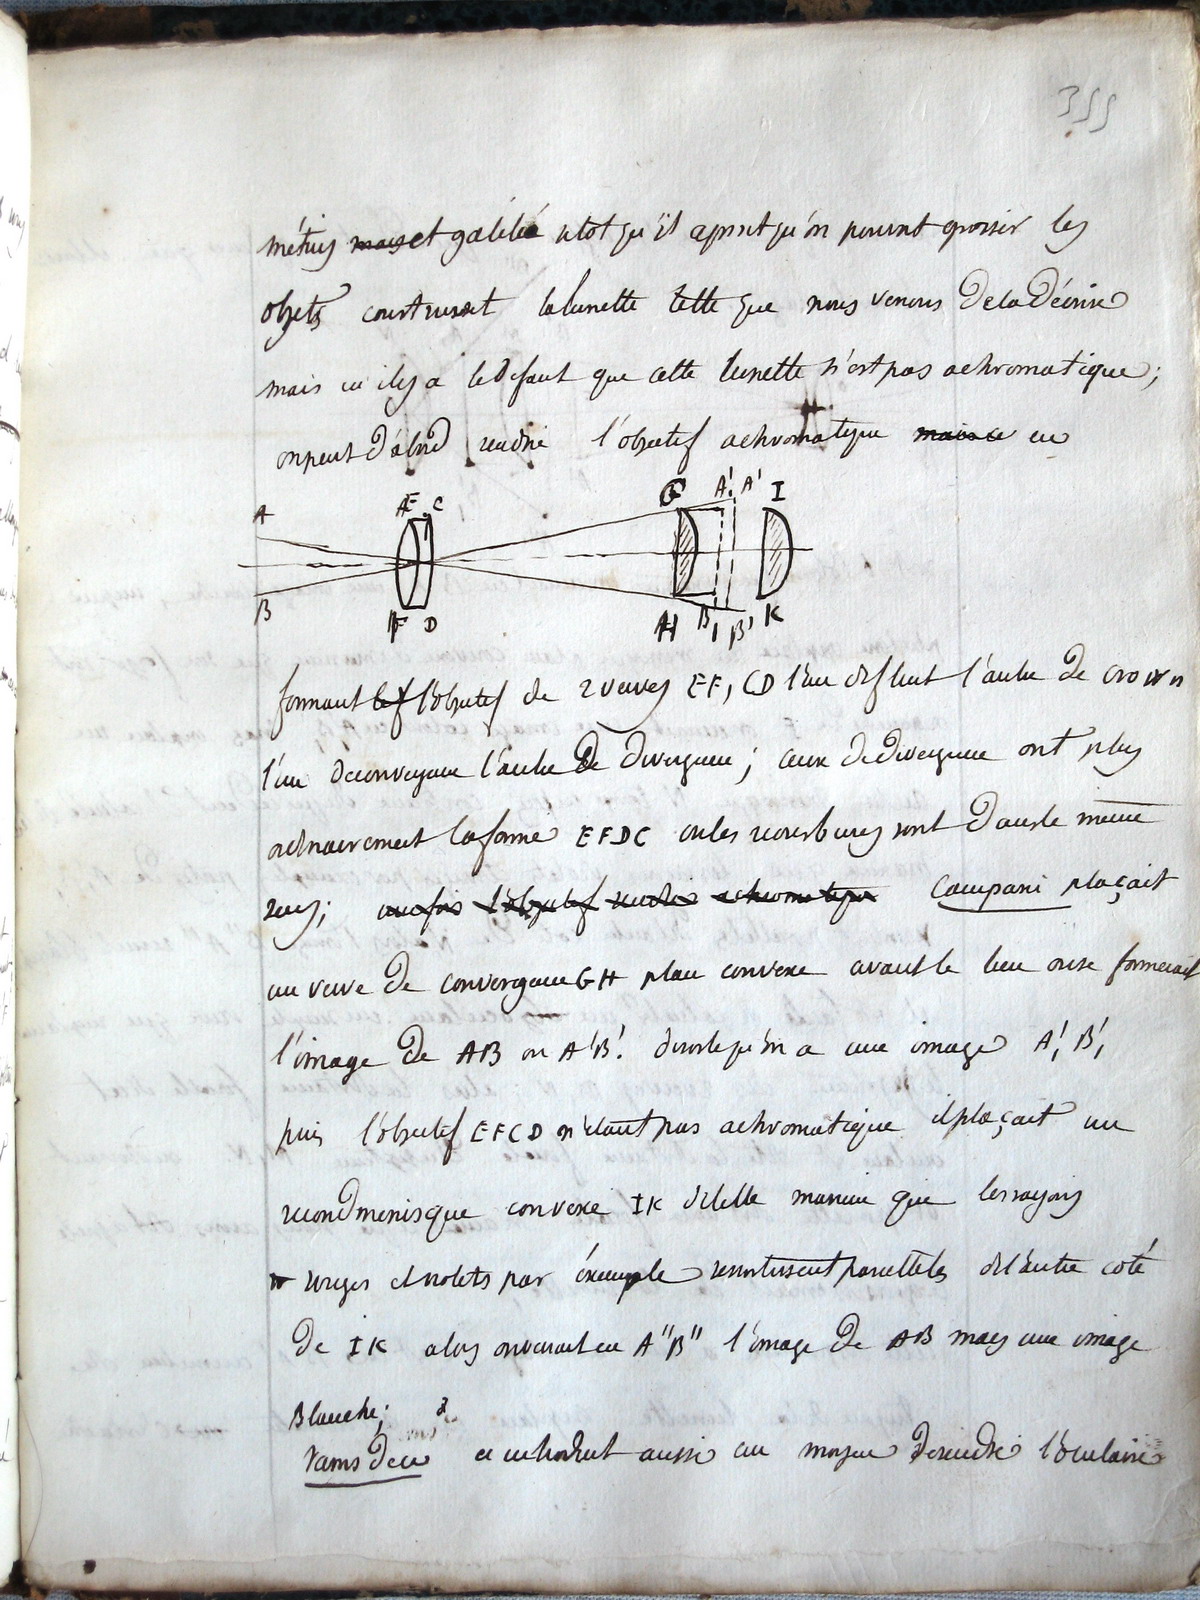 355
métius et galilée sitot qu'il aprit qu'on pouvait grossir les
objets construisit la lunette telle que nous venons de la décrire
mais il y a le défaut que cette lunette n'est pas achromatique;
on peut d'abord rendre l'objectif achromatique en
A E C G A' A' I
B F D H B' B' K
formant l'objectif de 2 verres EF, CD l'un de flint l'autre de crown
l'un de convergence l'autre de divergence; ceux de divergence ont plus
ordinairement la forme EFDC où les courbures sont dans le même
sens; une fois l'objectif rendu achromatique Campani plaçait
un verre de convergence GH plan convexe avant le lieu où se formerait
l'image de AB ou A'B'. de sorte qu'on a une image A', B',
puis l'objectif EFCD n'étant pas achromatique il plaçait un
second menisque convexe IK de telle manière que les rayons
rouges et violets par éxemple sortissent parallèles de l'autre coté
de IK alors on verrait en A"B" l'image de AB mais une image
Blanche;
Ramsden a cherché aussi un moyen de rendre l'oculaire